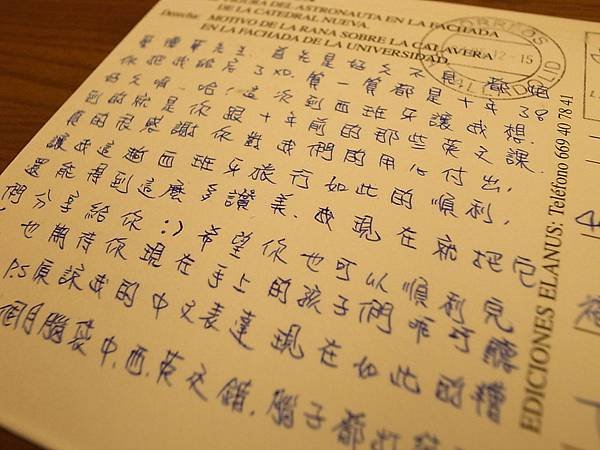 FIGURA DEL ASTRONAUTA EN LA FACHADA
DE LA CATEDRAL NUEVA.
Derecha: MOTIVO DE LA RANA SOBRE LA CALAVERA
EN LA FACHADA DE LA UNIVERSIDAD.
CORREOS
12-15
VALLADOLID
先生,首先是好久不見,都姐
你把我給忘了XD,算一算都是十年了
好久喔,哈!這次到西班牙讓我想
到的就是你跟十年前的那些英文課.
真的很感謝你對我們的用心付出,
讓我這趟西班牙旅行如此的順利,
還能得到這麼多讚美.我現在就把它
們分享給你:)希望你也可以順利完
,也期待你現在手上的孩子們乖可聽
P.S原諒我的中文表達現在如此的糟
個月腦袋中.西.英交錯.腦子都打
EDICIONES ELANUS. Teléfono 669 40 78 41